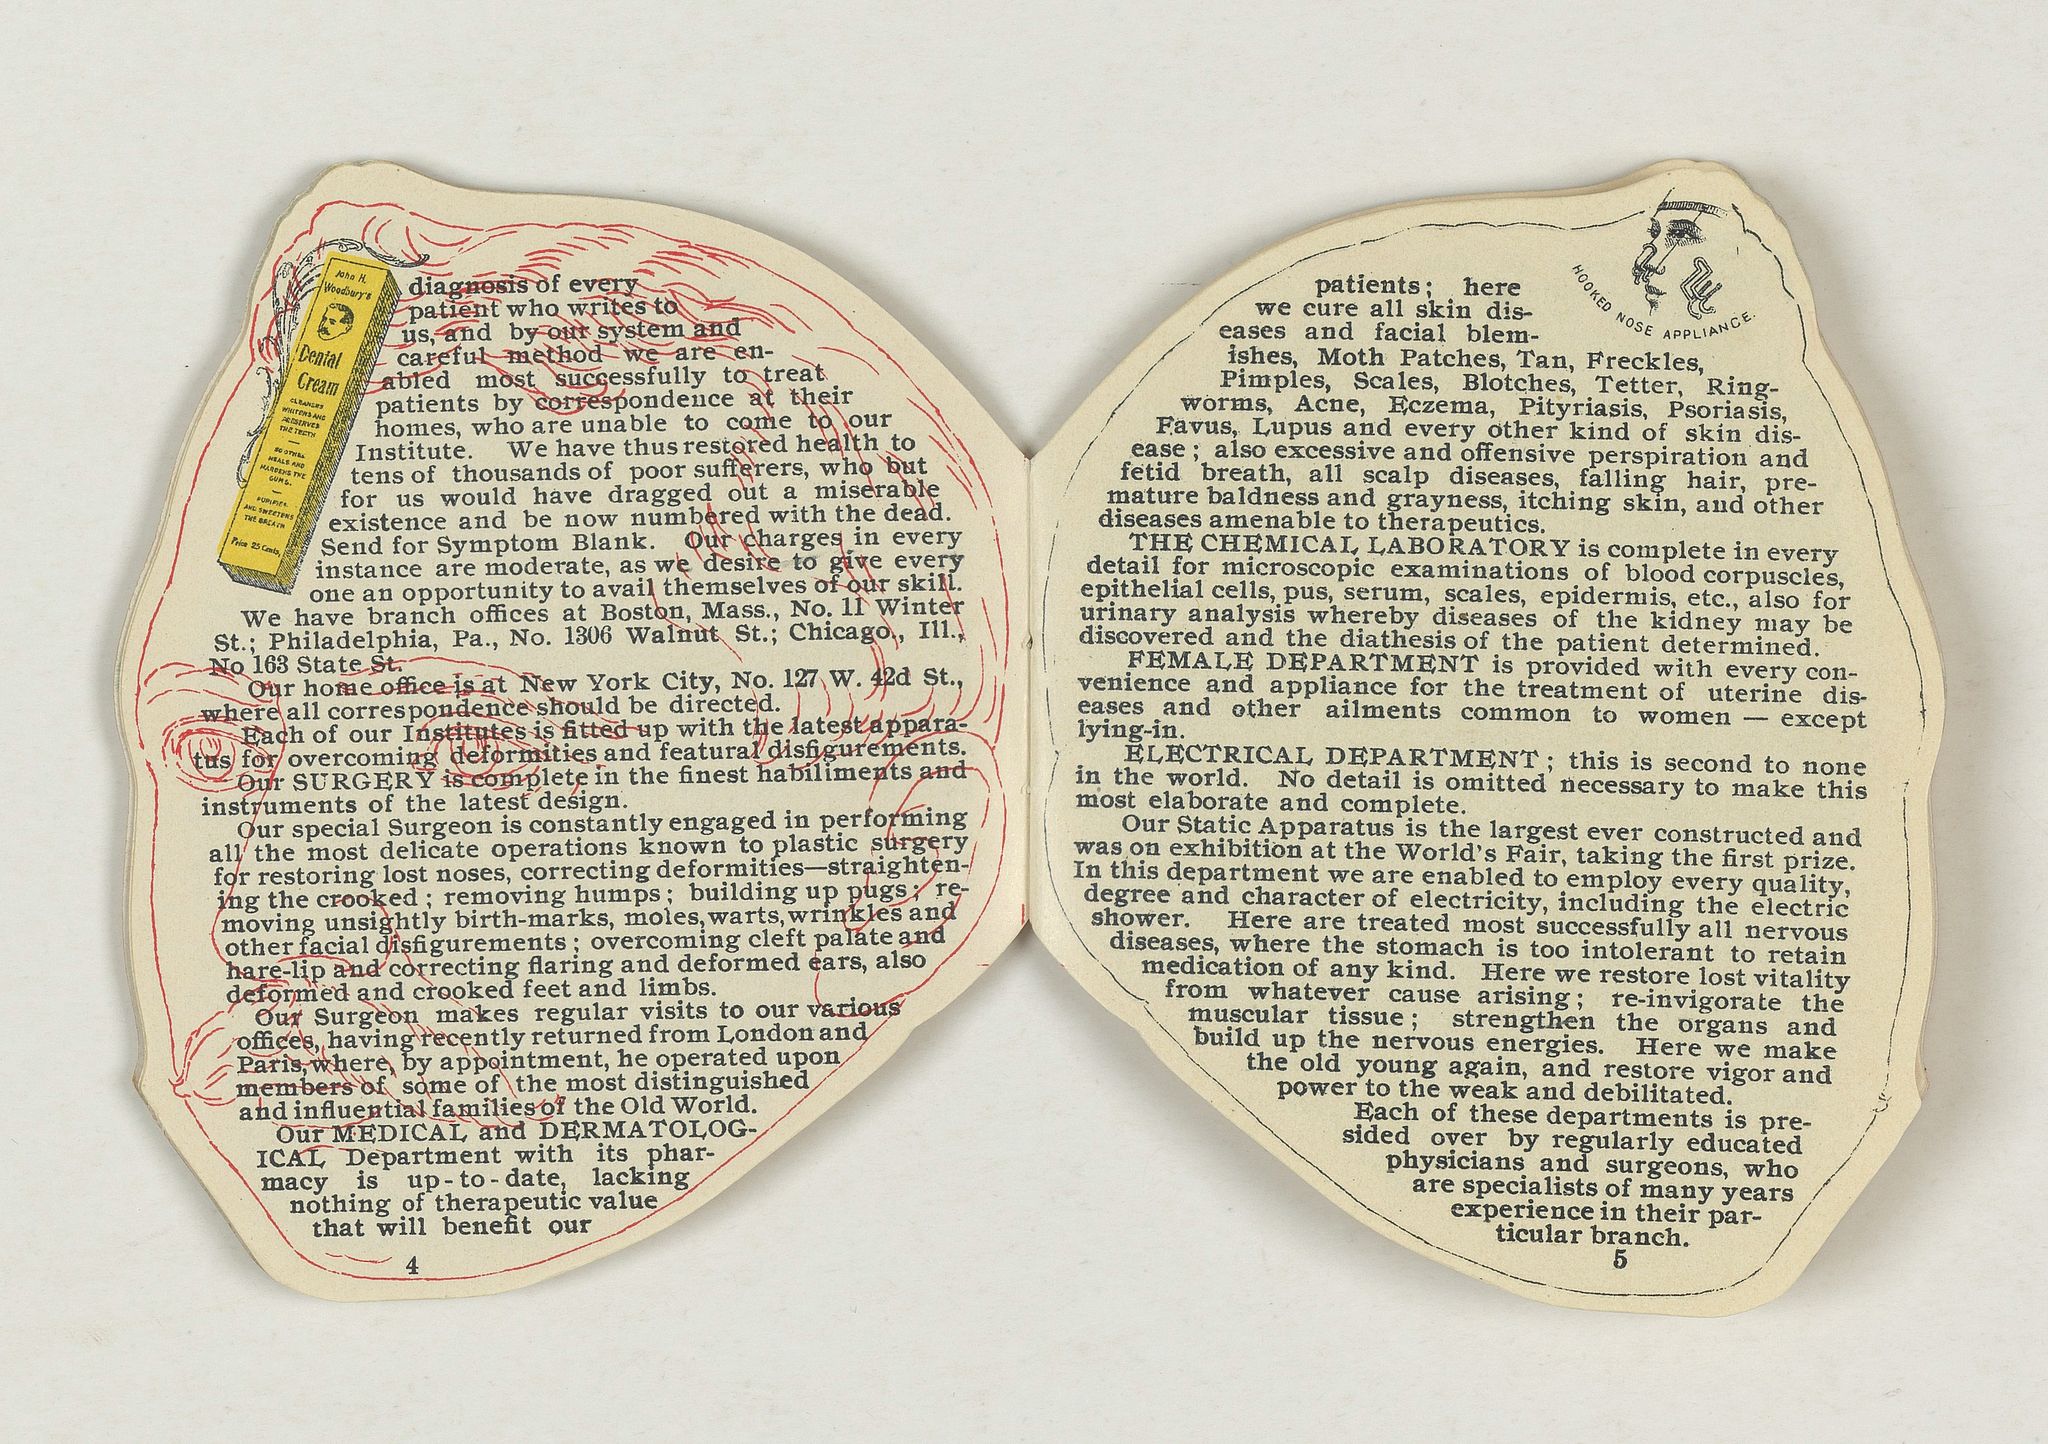 John H.
Woodbury's
Dental
Cream
CLEANSES
WHITENS AND
PRESERVES
THE TEETH
SOOTHES
HEALS AND
HARDENS THE
GUMS.
PURIFIES
AND SWEETENS
THE BREATH
Price 25 Cents,
diagnosis of every
patient who writes to
us, and by our system and
careful method we are en-
abled most successfully to treat
patients by correspondence at their
homes, who are unable to come to our
Institute. We have thus restored health to
tens of thousands of poor sufferers, who but
for us would have dragged out a miserable
existence and be now numbered with the dead.
Send for Symptom Blank. Our charges in every
instance are moderate, as we desire to give every
one an opportunity to avail themselves of our skill.
We have branch offices at Boston, Mass., No. 11 Winter
St.; Philadelphia, Pa., No. 1306 Walnut St.; Chicago., Ill.,
No 163 State St.
Our home office is at New York City, No. 127 W. 42d St.,
where all correspondence should be directed.
Each of our Institutes is fitted up with the latest appara-
tus for overcoming deformities and featural disfigurements.
Our SURGERY is complete in the finest habiliments and
instruments of the latest design.
Our special Surgeon is constantly engaged in performing
all the most delicate operations known to plastic surgery
for restoring lost noses, correcting deformities—straighten-
ing the crooked; removing humps; building up pugs; re-
moving unsightly birth-marks, moles, warts, wrinkles and
other facial disfigurements; overcoming cleft palate and
hare-lip and correcting flaring and deformed ears, also
deformed and crooked feet and limbs.
Our Surgeon makes regular visits to our various
offices, having recently returned from London and
Paris, where, by appointment, he operated upon
members of some of the most distinguished
and influential families of the Old World.
Our MEDICAL and DERMATOLOG-
ICAL Department with its phar-
macy is up-to-date, lacking
nothing of therapeutic value
that will benefit our
4
HOOKED NOSE APPLIANCE.
patients; here
we cure all skin dis-
eases and facial blem-
ishes, Moth Patches, Tan, Freckles,
Pimples, Scales, Blotches, Tetter, Ring-
worms, Acne, Eczema, Pityriasis, Psoriasis,
Favus, Lupus and every other kind of skin dis-
ease; also excessive and offensive perspiration and
fetid breath, all scalp diseases, falling hair, pre-
mature baldness and grayness, itching skin, and other
diseases amenable to therapeutics.
THE CHEMICAL LABORATORY is complete in every
detail for microscopic examinations of blood corpuscles,
epithelial cells, pus, serum, scales, epidermis, etc., also for
urinary analysis whereby diseases of the kidney may be
discovered and the diathesis of the patient determined.
FEMALE DEPARTMENT is provided with every con-
venience and appliance for the treatment of uterine dis-
eases and other ailments common to women — except
lying-in.
ELECTRICAL DEPARTMENT; this is second to none
in the world. No detail is omitted necessary to make this
most elaborate and complete.
Our Static Apparatus is the largest ever constructed and
was on exhibition at the World's Fair, taking the first prize.
In this department we are enabled to employ every quality,
degree and character of electricity, including the electric
shower. Here are treated most successfully all nervous
diseases, where the stomach is too intolerant to retain
medication of any kind. Here we restore lost vitality
from whatever cause arising; re-invigorate the
muscular tissue; strengthen the organs and
build up the nervous energies. Here we make
the old young again, and restore vigor and
power to the weak and debilitated.
Each of these departments is pre-
sided over by regularly educated
physicians and surgeons, who
are specialists of many years
experience in their par-
ticular branch.
5